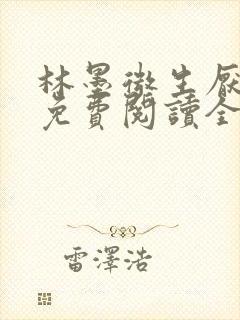 林墨微生厭
免費閱讀全
雷澤浩